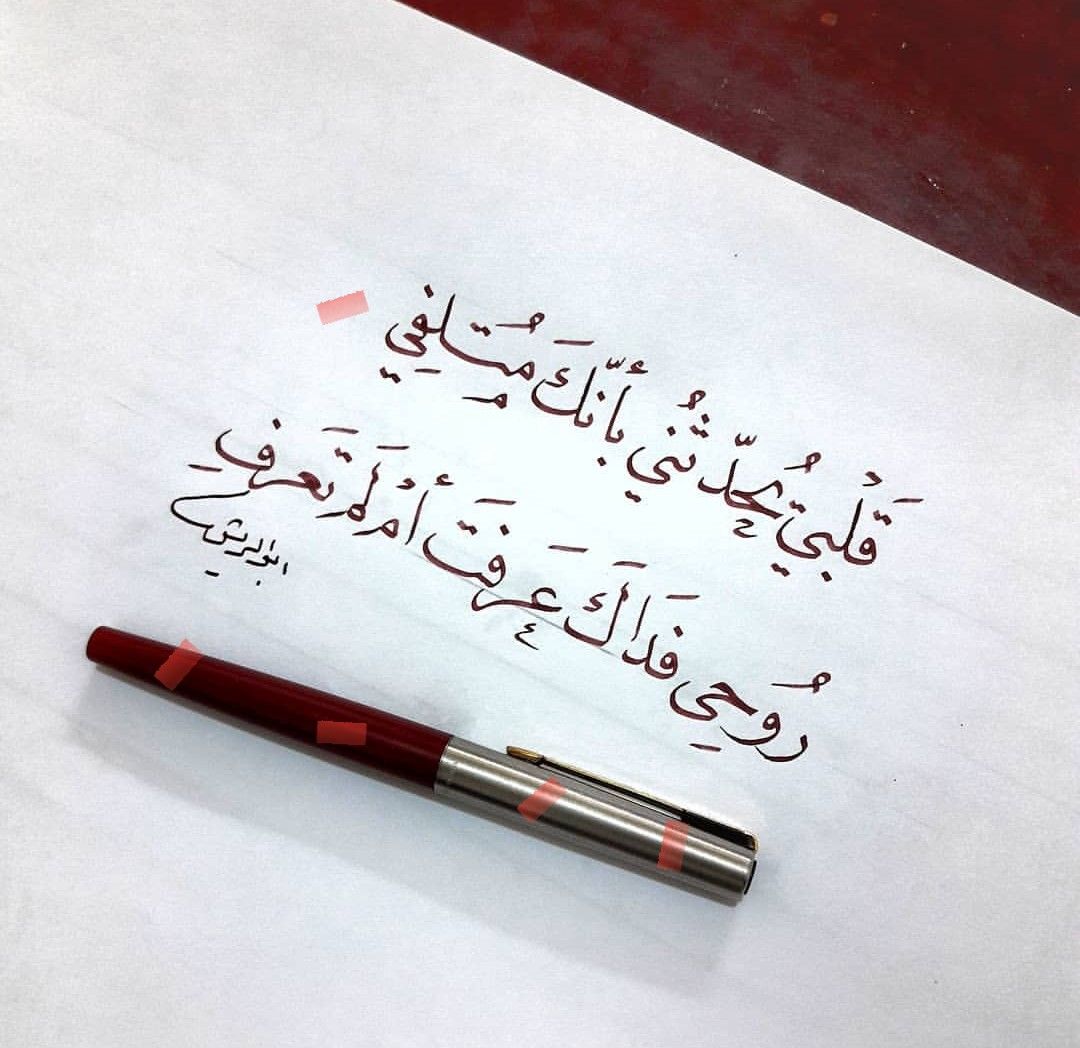 قَلْبي يُحدّثُني بأنّكَ مُتلفِي
رُوحِي فدَاكَ عَرفتَ أمْ لَمْ تَعرفِ
ابوالريش